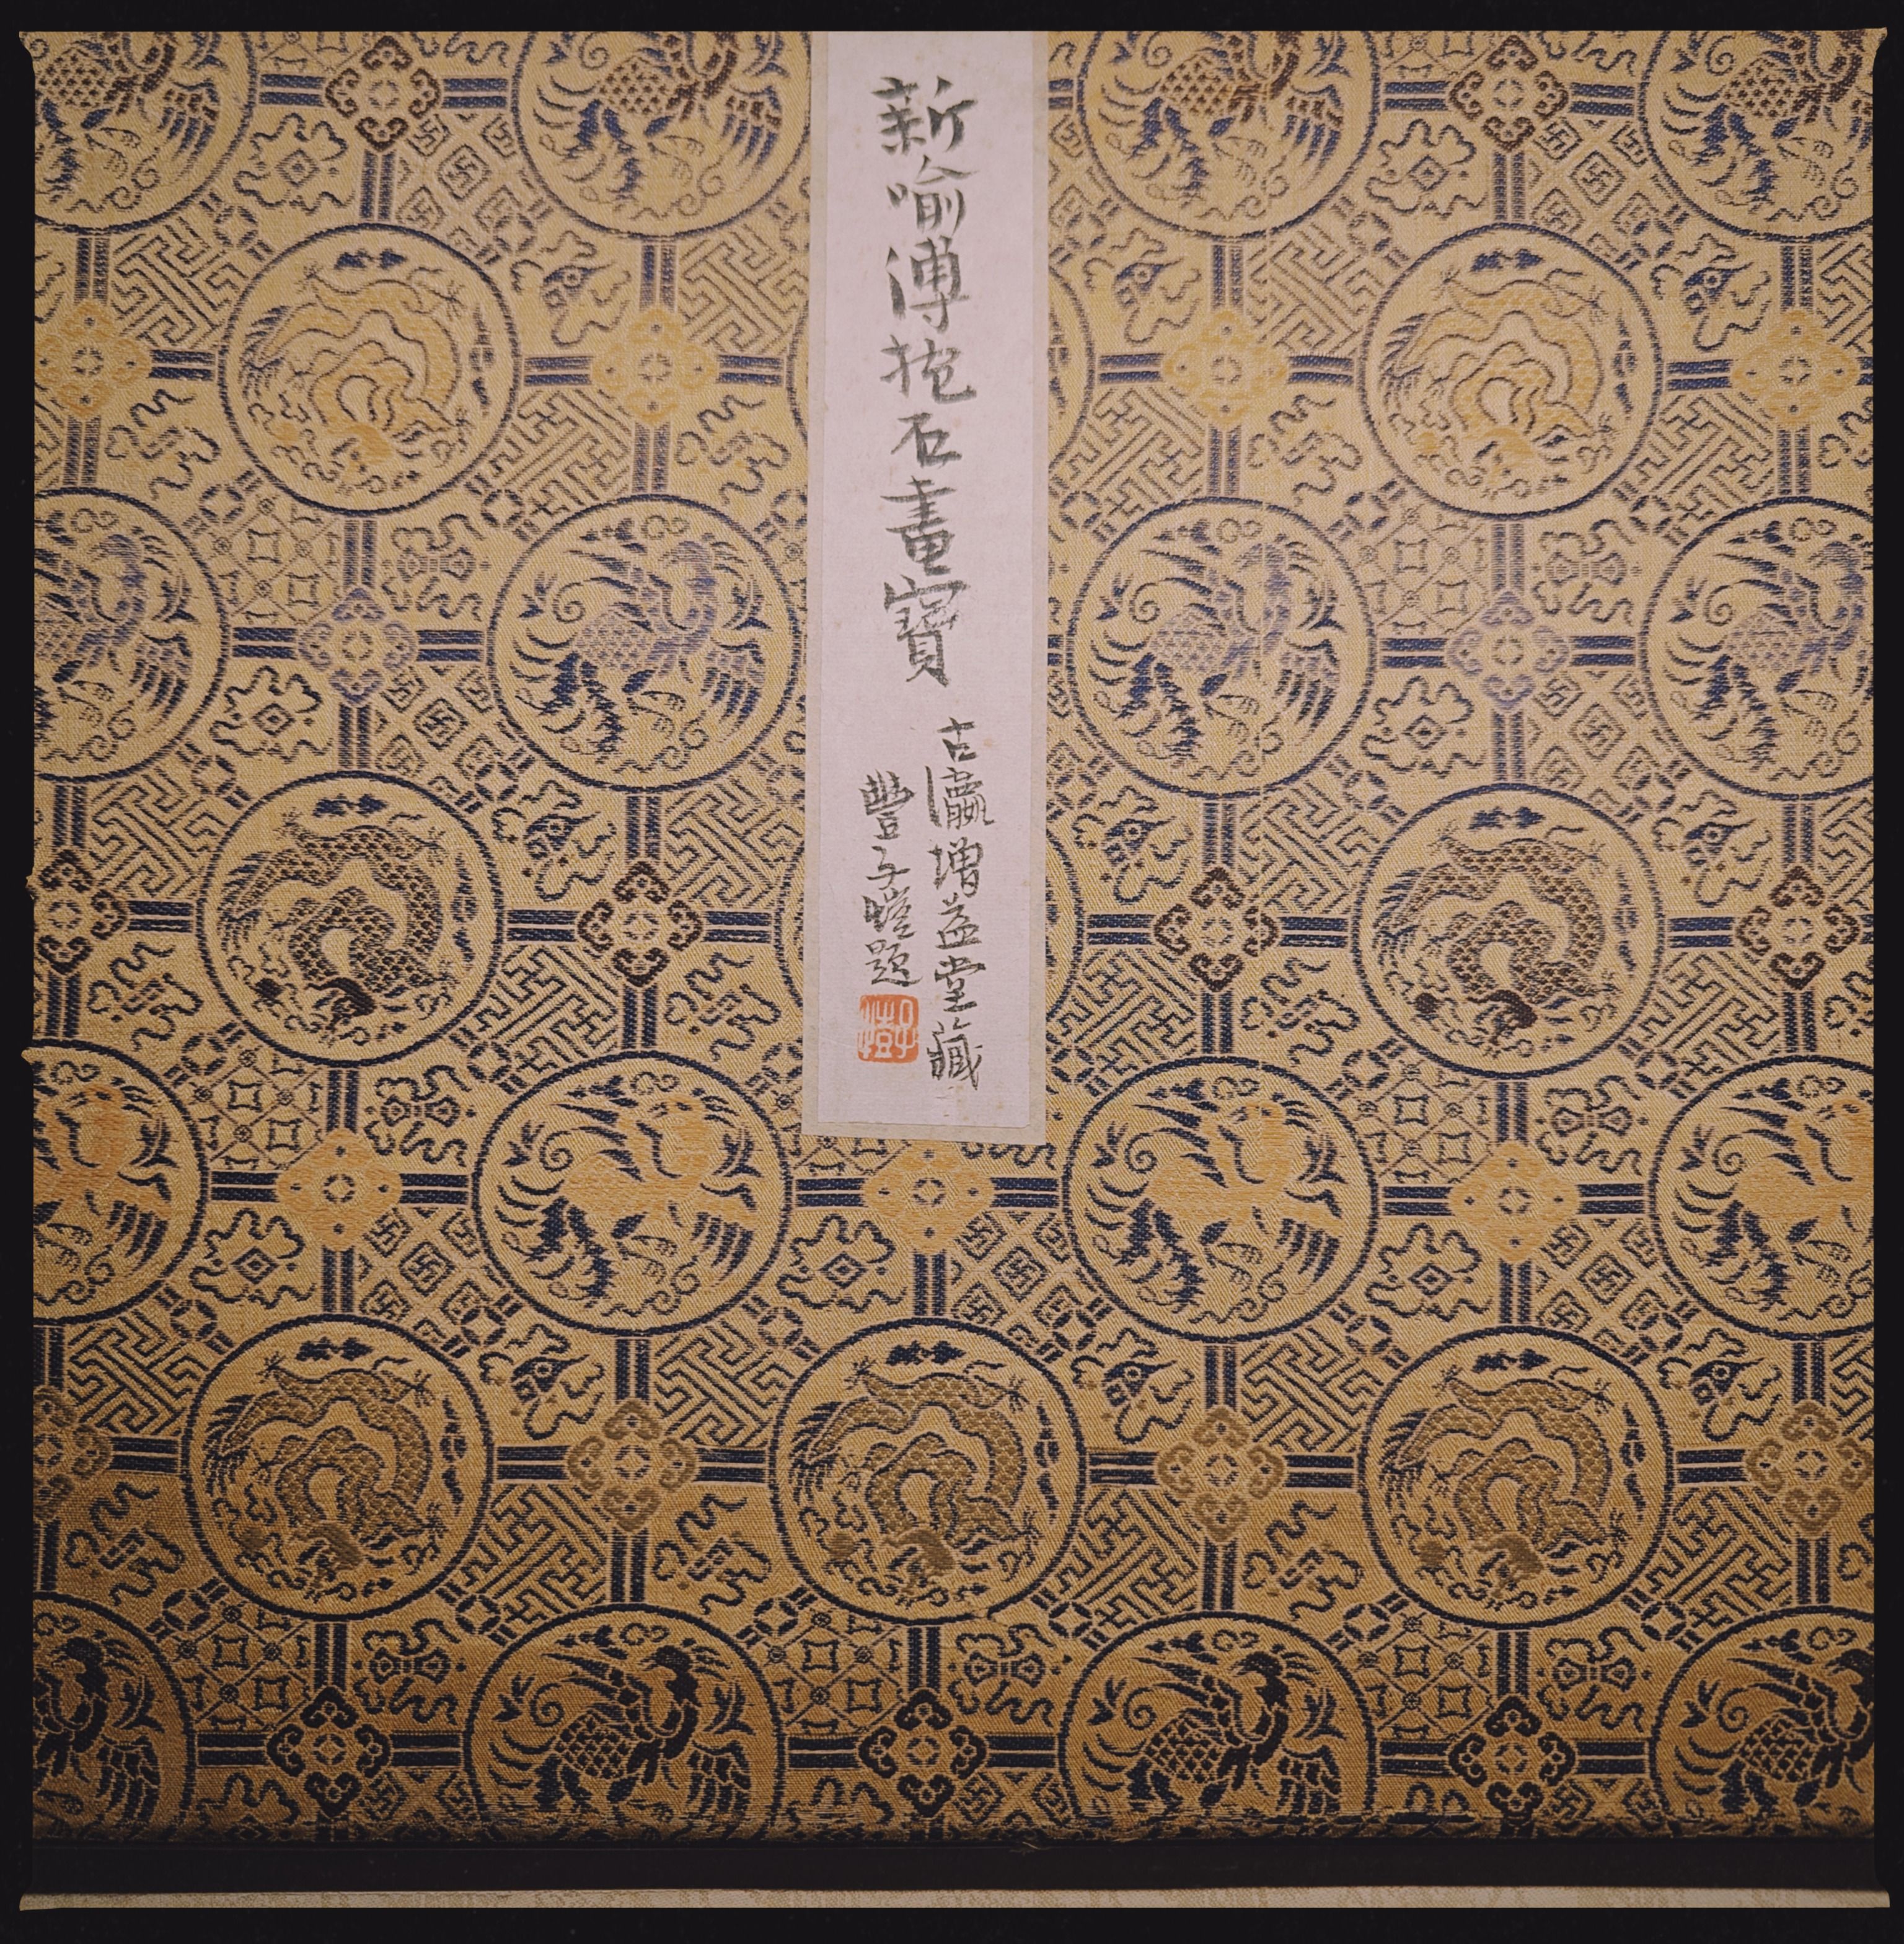 新喻傅抱石畫寶
古瀛增益堂藏
豐子愷題
子愷